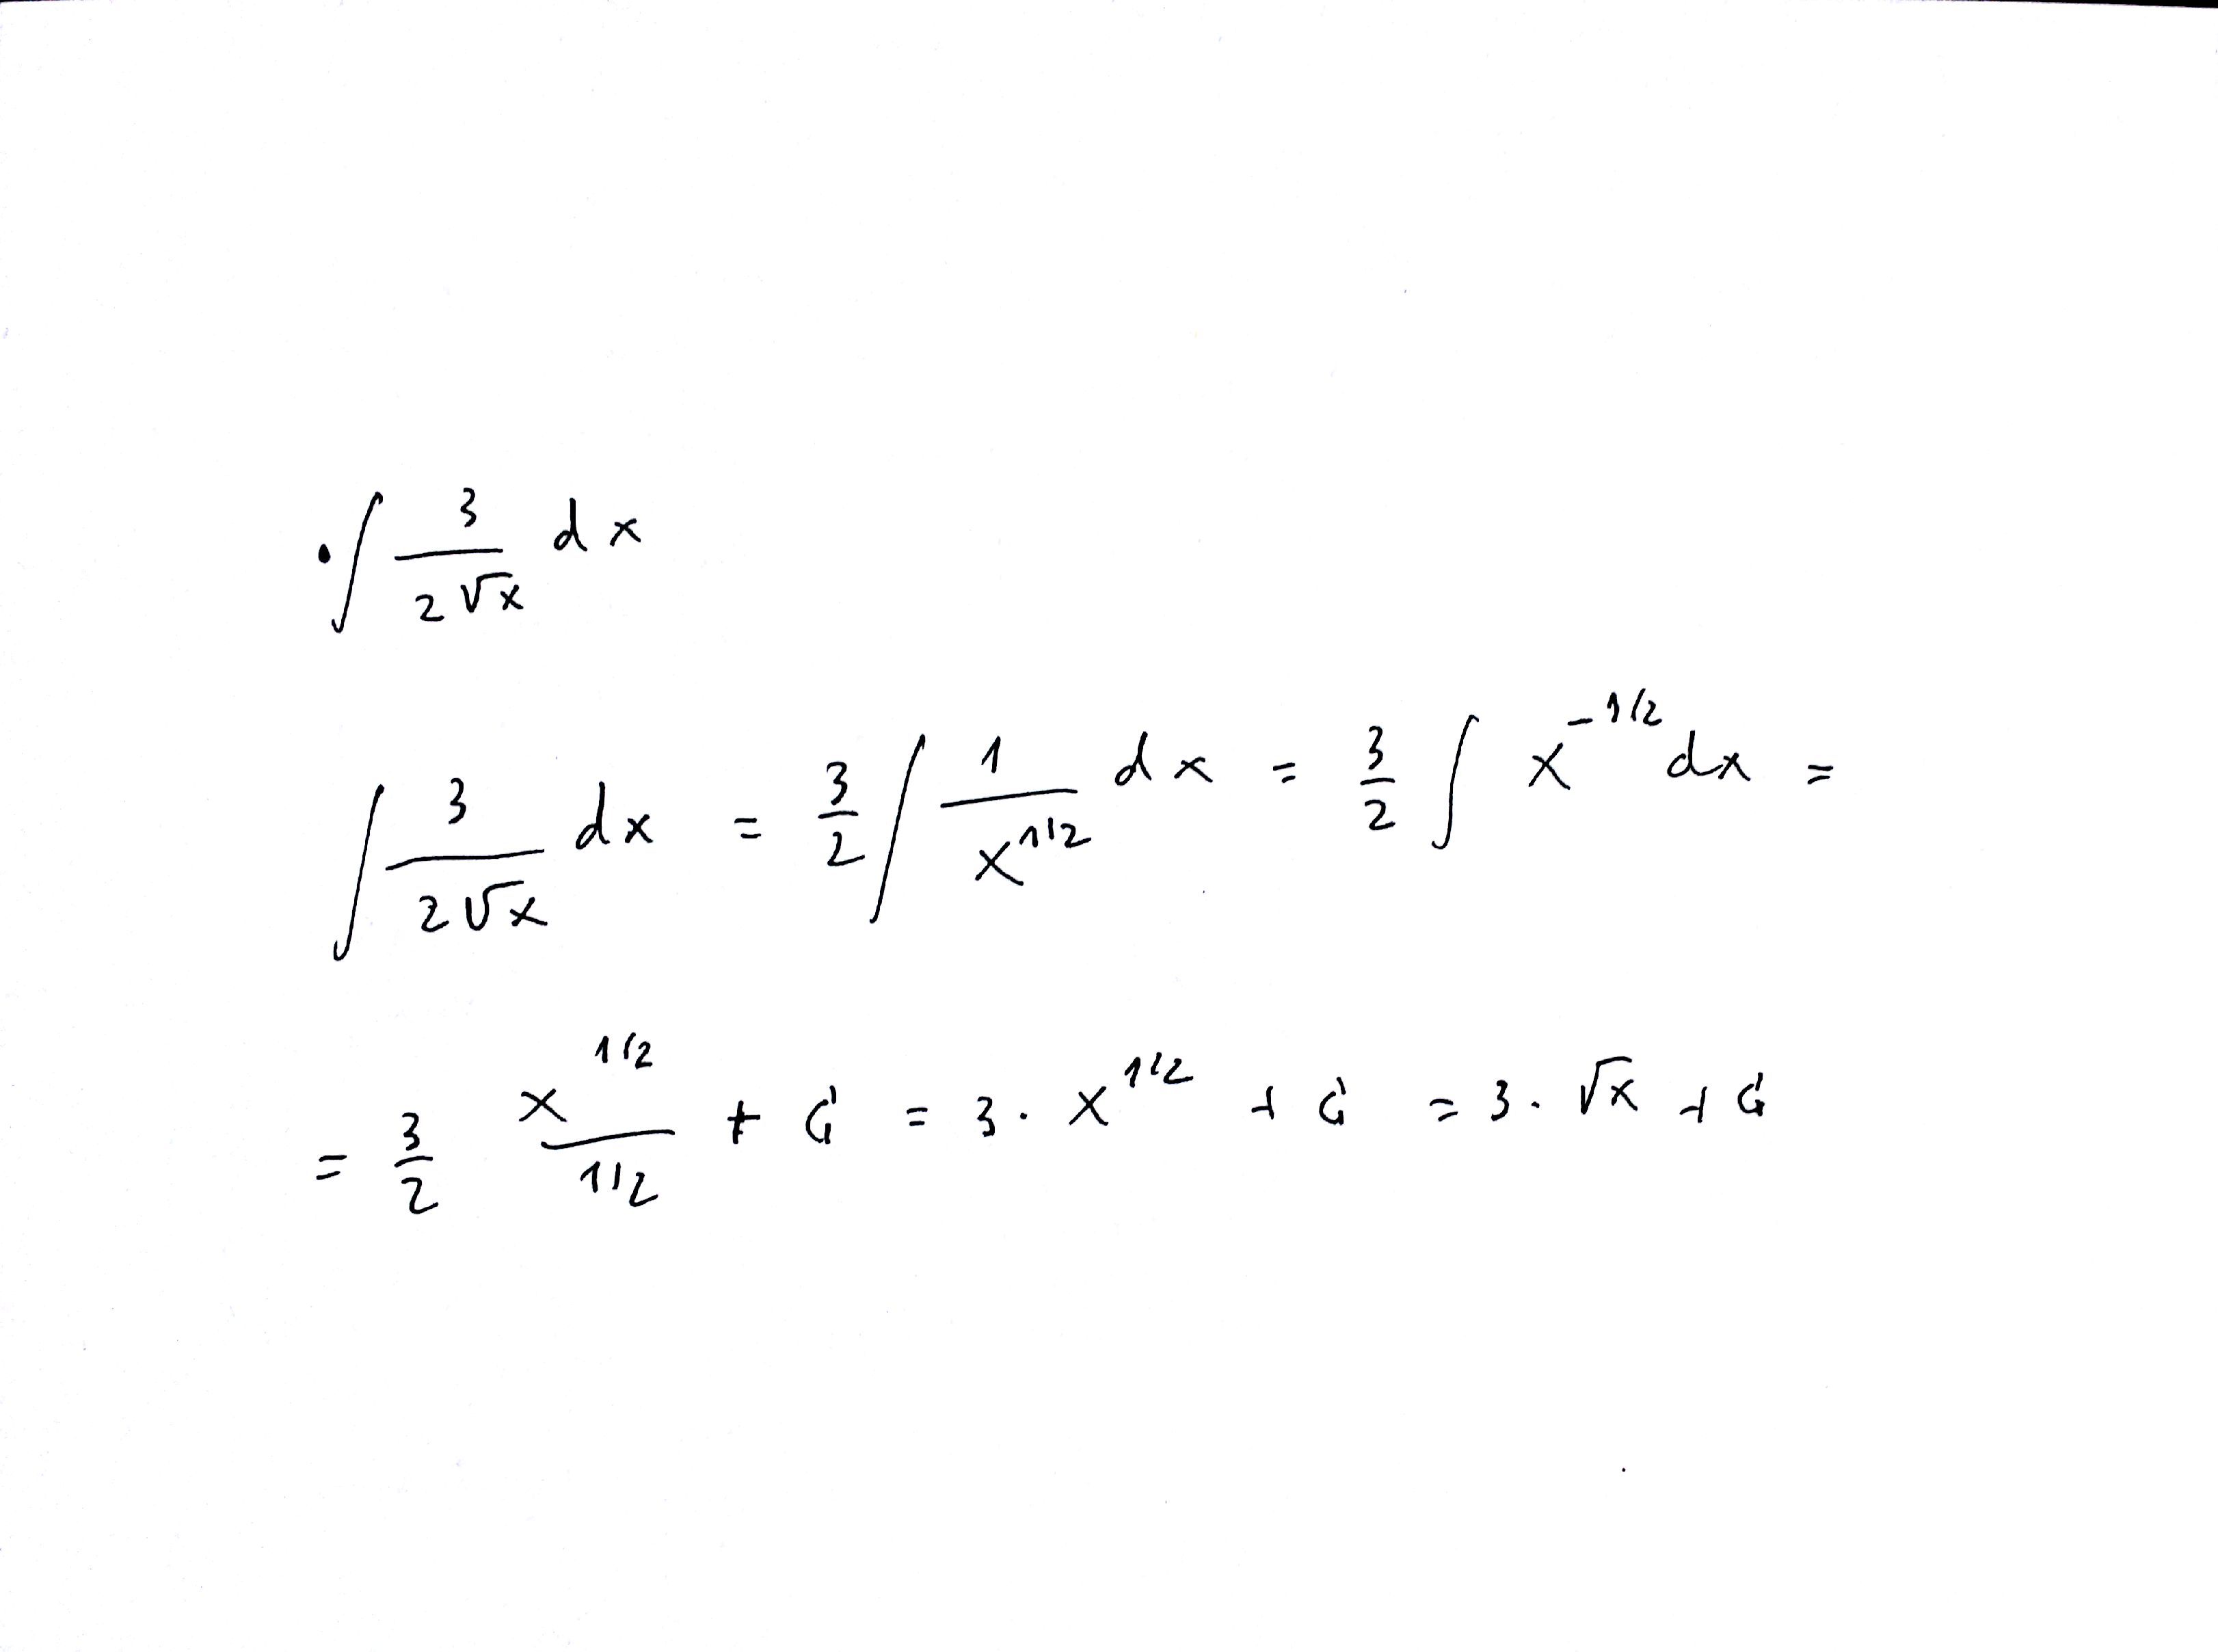 • ∫ 3/(2√x) dx
∫ 3/(2√x) dx = 3/2 ∫ 1/x^(1/2) dx = 3/2 ∫ x^(-1/2) dx =
= 3/2 x^(1/2)/(1/2) + C = 3 · x^(1/2) + C = 3 · √x + C